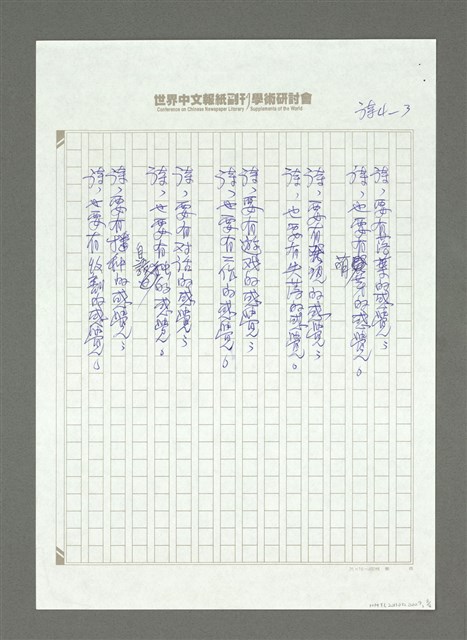 世界中文報紙副刊學術研討會
Conference on Chinese Newspaper Literary Supplements of the World
詩4—3
詩，要有落葉的感覺；
詩，也要有萌芽的感覺。
詩，要有發現的感覺；
詩，也要有失落的感覺。
詩，要有遊戏的感覺；
詩，也要有工作的感覺。
詩，要有对话的感覺；
詩，也要有自語的感覺。
詩，要有播种的感覺；
詩，也要有收割的感覺。